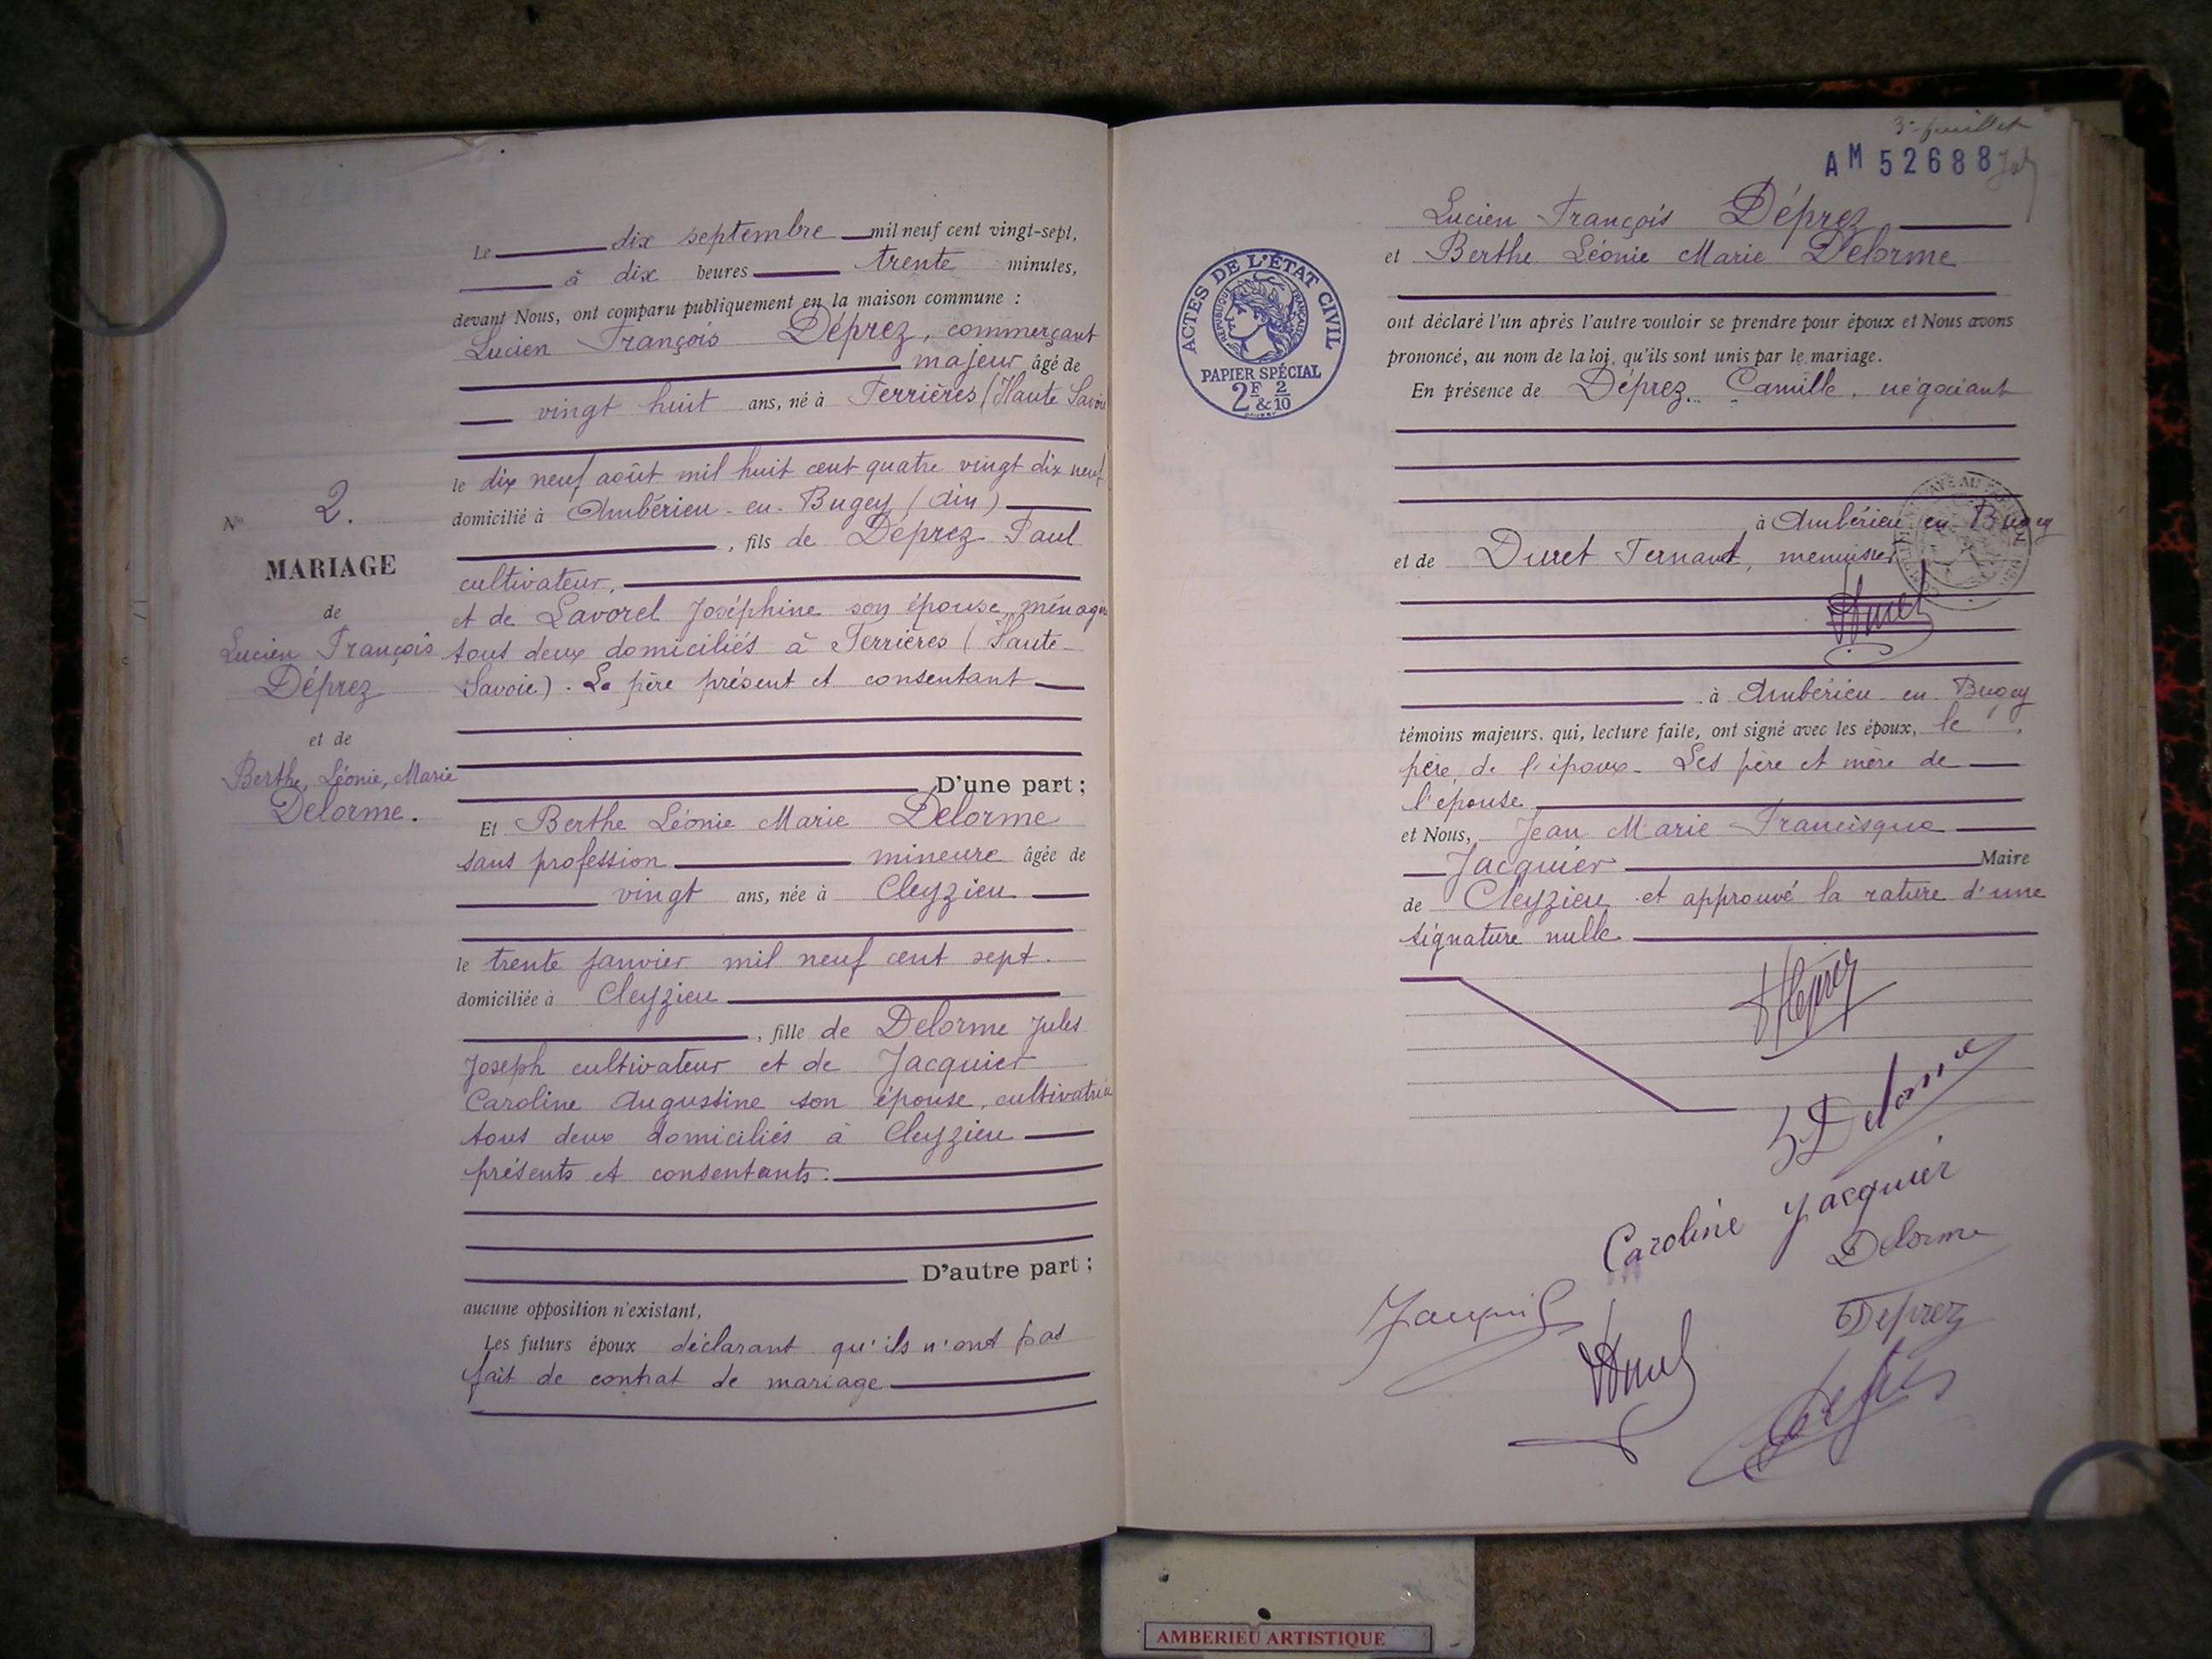 Le dix septembre mil neuf cent vingt-sept,
à dix heures trente minutes,
devant Nous, ont comparu publiquement en la maison commune :
Lucien François Déprez, commerçant
majeur âgé de
vingt huit ans, né à Ferrières (Haute Savoie
le dix neuf août mil huit cent quatre vingt dix neuf
domicilié à Ambérieu-en-Bugey (Ain)
, fils de Déprez Paul
cultivateur,
et de Lavorel Joséphine son épouse, ménagère
tous deux domiciliés à Ferrières (Haute-
Savoie). Le père présent et consentant
D'une part ;
Et Berthe Léonie Marie Delorme
sans profession mineure âgée de
vingt ans, née à Cleyzieu
le trente janvier mil neuf cent sept.
domiciliée à Cleyzieu
, fille de Delorme Jules
Joseph cultivateur et de Jacquier
Caroline Augustine son épouse, cultivatrice
tous deux domiciliés à Cleyzieu
présents et consentants.
D'autre part ;
aucune opposition n'existant,
Les futurs époux déclarant qu'ils n'ont pas
fait de contrat de mariage
N° 2.
MARIAGE
de
Lucien François
Déprez
et de
Berthe, Léonie, Marie
Delorme.
3e feuillet
AM 52688
Lucien François Déprez
et Berthe Léonie Marie Delorme
ACTES DE L'ÉTAT CIVIL
RÉPUBLIQUE FRANÇAISE
PAPIER SPÉCIAL
2F & 2/10
ont déclaré l'un après l'autre vouloir se prendre pour époux et Nous avons
prononcé, au nom de la loi, qu'ils sont unis par le mariage.
En présence de Déprez Camille, négociant
à Ambérieu en Bugey
et de Duret Fernand, menuisier
à Ambérieu-en-Bugey
témoins majeurs. qui, lecture faite, ont signé avec les époux, le
père de l'époux. Les père et mère de
l'épouse
et Nous, Jean Marie Francisque
Jacquier Maire
de Cleyzieu et approuvé la rature d'une
signature nulle
Déprez
Delorme
Caroline Jacquier
Delorme
Jacquier
Deprez
AMBERIEU ARTISTIQUE